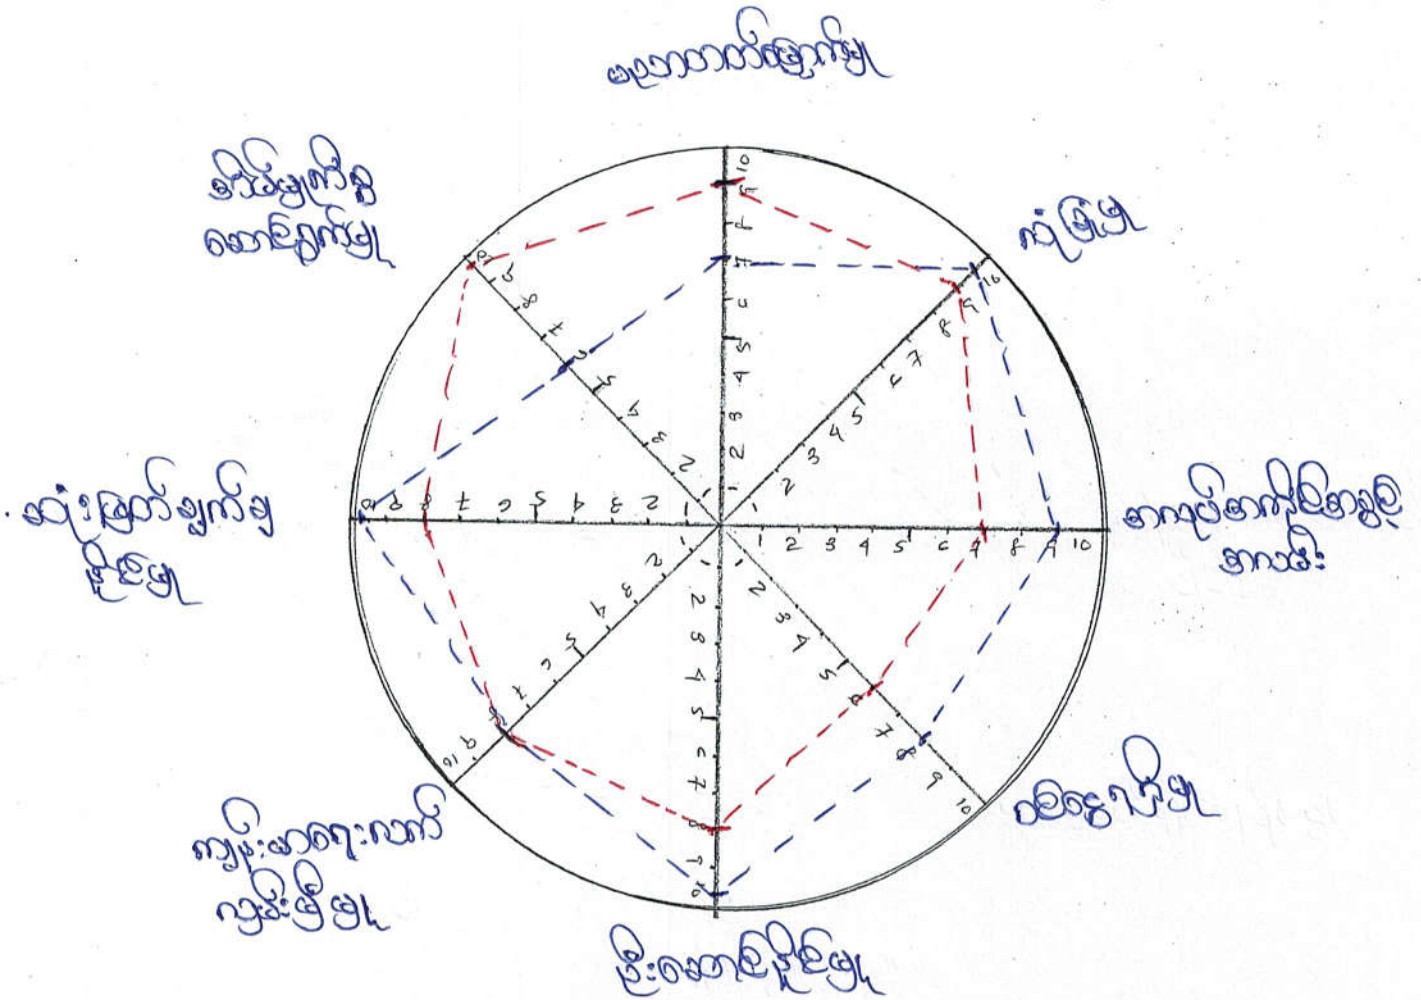 ပညာတတ်မြောက်မှု
လုံခြုံမှု
အလုပ်အကိုင်အခွင့်
အလမ်း
ဝင်ငွေရရှိမှု
ဦးဆောင်နိုင်မှု
ကျန်းမာရေးလက်
လှမ်းမီမှု
ဆုံးဖြတ်ချက်ချ
နိုင်မှု
အိမ်မှုကိစ္စ
ဆောင်ရွက်မှု
2 3 4 5 6 7 8 9 10
2 3 4 5 6 7 8 9 10
1 2 3 4 5 6 7 8 9 10
2 3 4 5 6 7 8 9 10
2 3 4 5 6 7 8 9 10
2 3 4 5 6 7 8 9 10
2 3 4 5 6 7 8 9 10
2 3 4 5 6 7 8 9 10